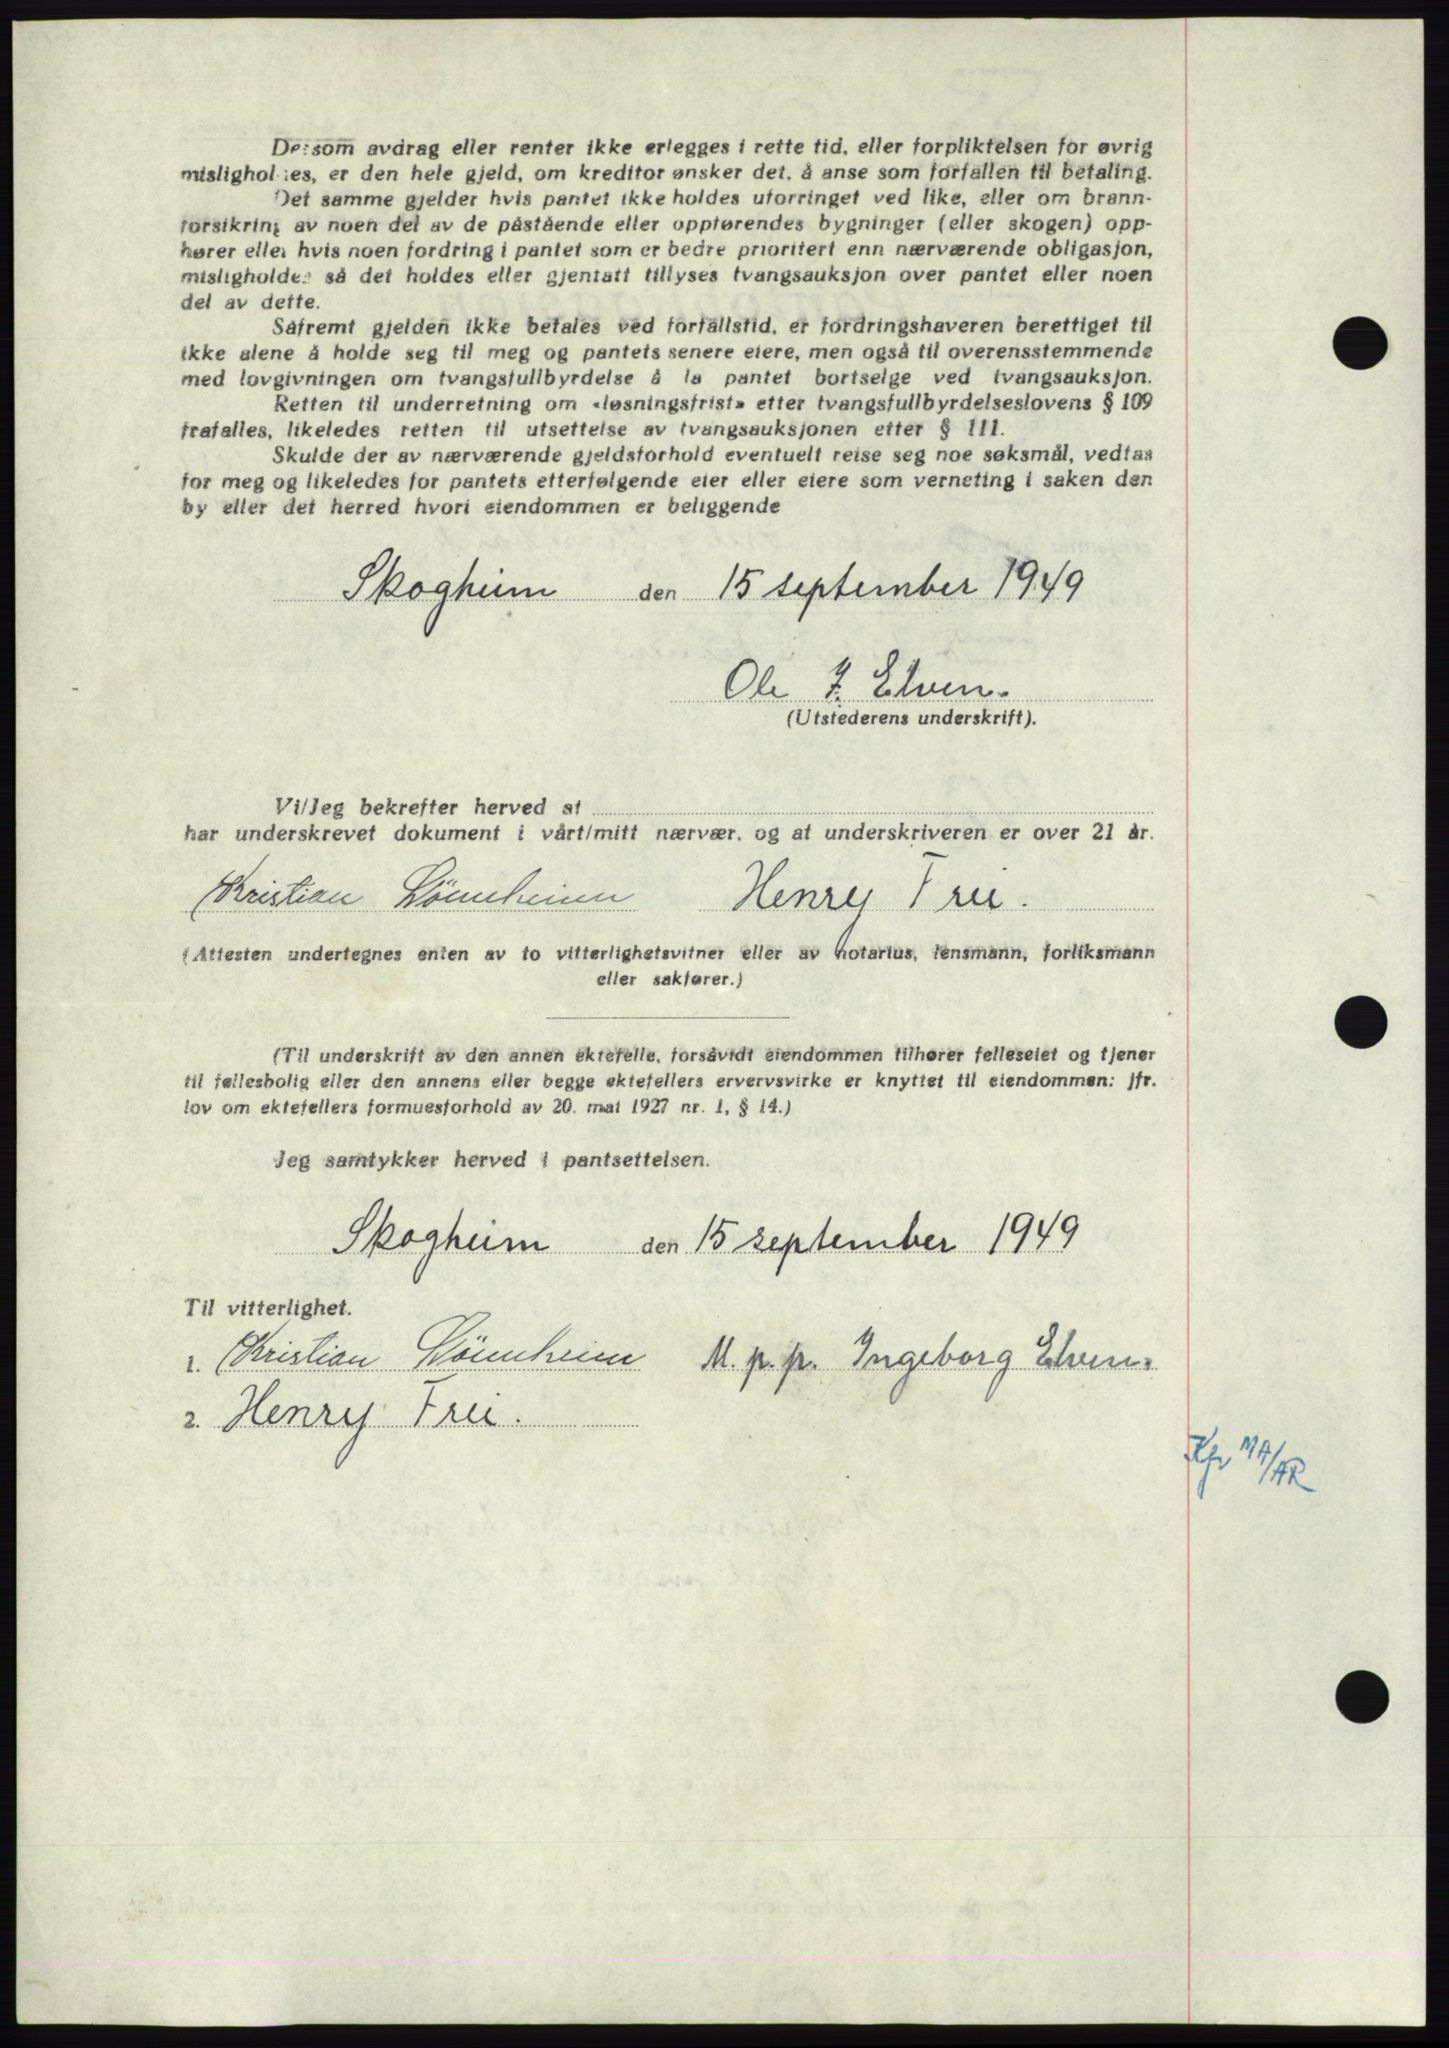 Dersom avdrag eller renter ikke erlegges i rette tid, eller forpliktelsen for øvrig
misligholdes, er den hele gjeld, om kreditor ønsker det, å anse som forfallen til betaling.
Det samme gjelder hvis pantet ikke holdes uforringet ved like, eller om brann-
forsikring av noen del av de påstående eller oppførendes bygninger (eller skogen) opp-
hører eller hvis noen fordring i pantet som er bedre prioritert enn nærværende obligasjon,
misligholdes så det holdes eller gjentatt tillyses tvangsauksjon over pantet eller noen
del av dette.
Såfremt gjelden ikke betales ved forfallstid, er fordringshaveren berettiget til
ikke alene å holde seg til meg og pantets senere eiere, men også til overensstemmende
med lovgivningen om tvangsfullbyrdelse å la pantet bortselge ved tvangsauksjon.
Retten til underretning om «løsningsfrist» etter tvangsfullbyrdelseslovens § 109
frafalles, likeledes retten til utsettelse av tvangsauksjonen etter § 111.
Skulde der av nærværende gjeldsforhold eventuelt reise seg noe søksmål, vedtas
for meg og likeledes for pantets etterfølgende eier eller eiere som verneting i saken den
by eller det herred hvori eiendommen er beliggende
Skogheim den 15 september 1949
Ole J. Elven.
(Utstederens underskrift).
Vi/Jeg bekrefter herved at
har underskrevet dokument i vårt/mitt nærvær, og at underskriveren er over 21 år.
Kristian Lönnheim Henry Frei.
(Attesten undertegnes enten av to vitterlighetsvitner eller av notarius, lensmann, forliksmann
eller sakfører.)
(Til underskrift av den annen ektefelle, forsåvidt eiendommen tilhører felleseiet og tjener
til fellesbolig eller den annens eller begge ektefellers ervervsvirke er knyttet til eiendommen: jfr.
lov om ektefellers formuesforhold av 20. mai 1927 nr. 1, § 14.)
Jeg samtykker herved i pantsettelsen.
Skogheim den 15 september 1949
Til vitterlighet.
1. Kristian Lönnheim M. p. p. Ingeborg Elven.
2. Henry Frei.